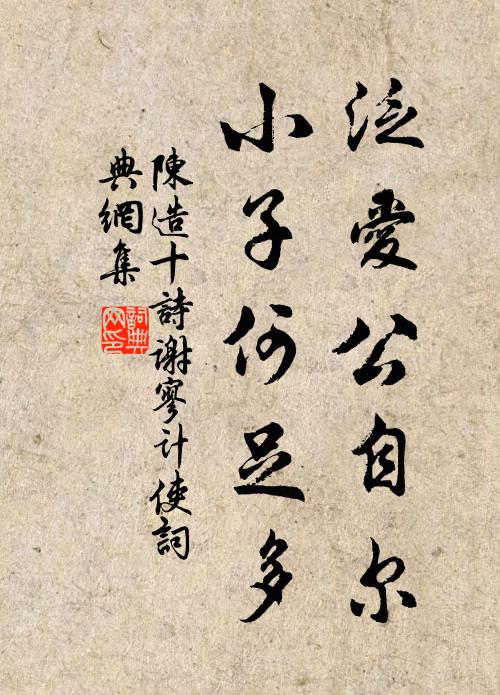 泛愛公自尔
小子何足多
陳造十詩謝寥计使詞
典網集
詞典网印